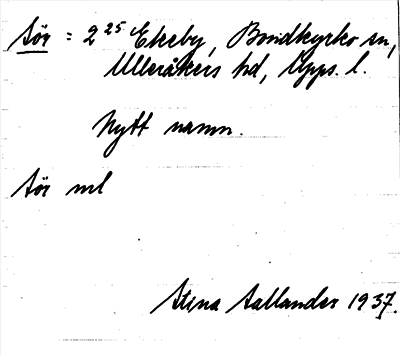 Sör = 2 25 Ekeby, Bondkyrko sn,
Ulleråkers hd, Upps. l.
Nytt namn.
Sör ml
Stina Sallander 1937.